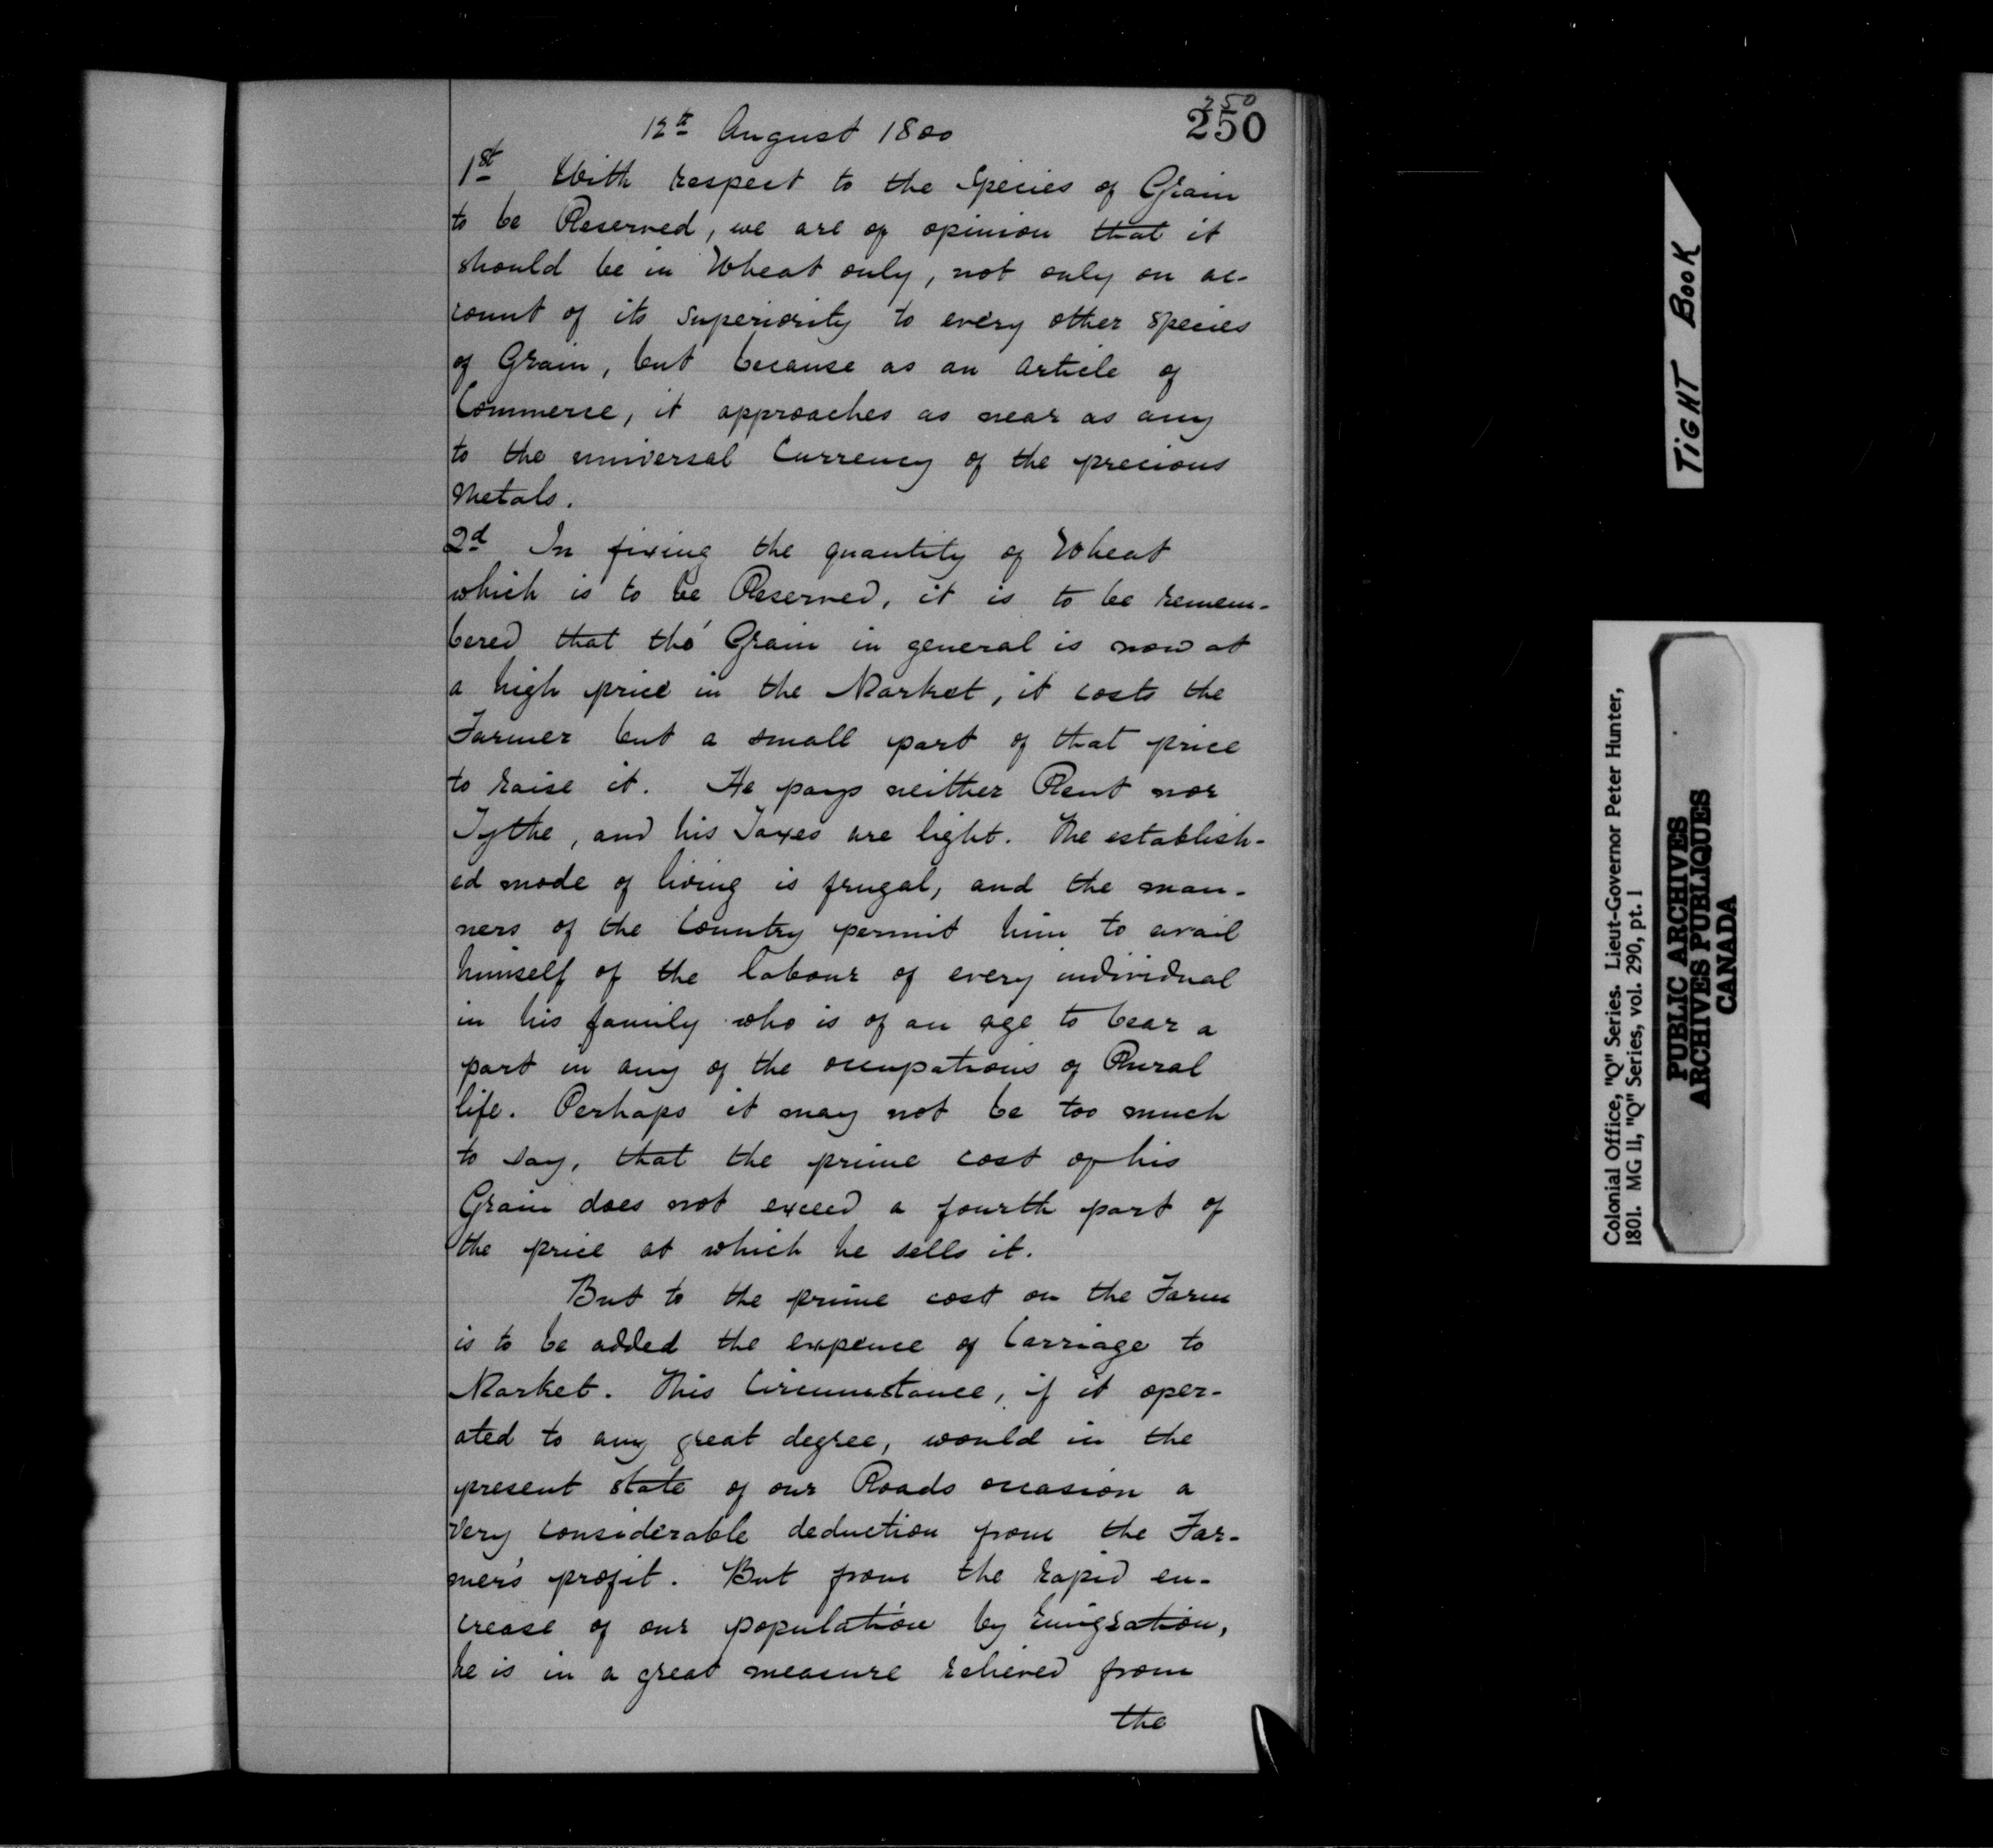 250
250
12th August 1800
1st With respect to the Species of Grain
to be Reserved, we are of opinion that it
should be in Wheat only, not only on ac-
count of its superiority to every other species
of Grain, but because as an article of
Commerce, it approaches as near as any
to the universal Currency of the precious
Metals.
2d In fixing the quantity of Wheat
which is to be Reserved, it is to be remem-
bered that tho' Grain in general is now at
a high price in the Market, it costs the
Farmer but a small part of that price
to raise it. He pays neither Rent nor
Tythe, and his Taxes are light. The establish-
ed mode of living is frugal, and the man-
ners of the Country permit him to avail
himself of the labour of every individual
in his family who is of an age to bear a
part in any of the occupations of Rural
life. Perhaps it may not be too much
to say, that the prime cost of his
Grain does not exceed a fourth part of
the price at which he sells it.
But to the prime cost on the Farm
is to be added the expence of Carriage to
Market. This Circumstance, if it oper-
ated to any great degree, would in the
present state of our Roads occasion a
very considerable deduction from the Far-
mer's profit. But from the rapid en-
crease of our population by Emigration,
he is in a great measure relieved from
the
TIGHT BOOK
Colonial Office, "Q" Series. Lieut-Governor Peter Hunter,
1801. MG 11, "Q" Series, vol. 290, pt. 1
PUBLIC ARCHIVES
ARCHIVES PUBLIQUES
CANADA